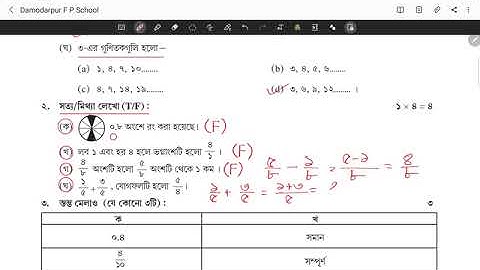 Damodarpur F P School
(ঘ) ৩-এর গুণিতকগুলি হলো –
(a) ১, ৪, ৭, ১০........
(b) ৩, ৪, ৫, ৬.......
(c) ৪, ৭, ১৪, ১৯........
(d) ৩, ৬, ৯, ১২....... ।
২. সত্য/মিথ্যা লেখো (T/F) :
১ × ৪ = ৪
(ক) ০.৮ অংশে রং করা হয়েছে। (F)
(খ) লব ১ এবং হর ৪ হলে ভগ্নাংশটি হলো ৪/১ । (F)
(গ) ৪/৮ অংশটি হলো ৫/৮ অংশটি থেকে ১ কম । (F)
৫/৮ - ১/৮ = ৫-১/৮ = ৪/৮
(ঘ) ১/৫ + ৩/৫ , যোগফলটি হলো ৫/৪ ।
১/৫ + ৩/৫ = ১+৩/৫ =
৩. স্তম্ভ মেলাও (যে কোনো ৩টি) :
৩
ক
খ
০.৪
সমান
৪/১০
সম্পূর্ণ